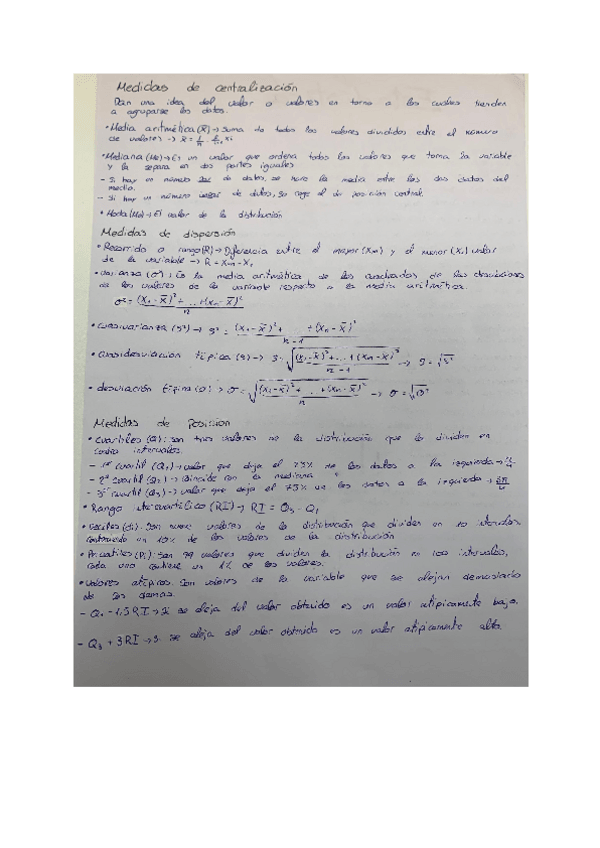 Medidas de centralización
Dan una idea del valor o valores en torno a los cuales tienden
a agruparse los datos.
• Media aritmética (x̄) → Suma de todos los valores divididos entre el número
de valores → x̄ = 1/n Σ xi
• Mediana (Me) → Es un valor que ordena todos los valores que toma la variable
y la separa en dos partes iguales
- Si hay un número par de datos, se hace la media entre los dos datos del
medio.
- Si hay un número impar de datos, se coge el de posición central.
• Moda (Mo) → El valor de la distribución
Medidas de dispersión
• Recorrido o rango (R) → Diferencia entre el mayor (Xm) y el menor (X1) valor
de la variable → R = Xm - X1
• Varianza (σ²): Es la media aritmética de los cuadrados de las desviaciones
de los valores de la variable respecto a la media aritmética.
σ² = (x1 - x̄)² + ... + (xn - x̄)² / n
• Cuasivarianza (s²) → s² = (x1 - x̄)² + ... + (xn - x̄)² / n - 1
• Cuasidesviación típica (s) → s = √((x1 - x̄)² + ... + (xn - x̄)² / n - 1) → s = √s²
• desviación típica (σ) → σ = √((x1 - x̄)² + ... + (xn - x̄)² / n) → σ = √σ²
Medidas de Posición
• Cuartiles (Q): son tres valores de la distribución que lo dividen en
cuatro intervalos.
- 1er cuartil (Q1) → valor que deja el 25% de los datos a la izquierda →
- 2º cuartil (Q2) → coincide con la mediana
- 3er cuartil (Q3) → valor que deja el 75% de los datos a la izquierda → 3n/4
• Rango intercuartílico (RI) → RI = Q3 - Q1
• Deciles (Di): Son nueve valores de la distribución que dividen en 10 intervalos
conteniendo un 10% de los valores de la distribución
• Percentiles (Pi): Son 99 valores que dividen la distribución en 100 intervalos,
cada uno contiene un 1% de los valores.
• Valores atípicos: Son valores de la variable que se alejan demasiado
de los demás.
- Q1 - 1,5 RI → Si se aleja del valor obtenido es un valor atípicamente bajo.
- Q3 + 3 RI → Si se aleja del valor obtenido es un valor atípicamente alto.